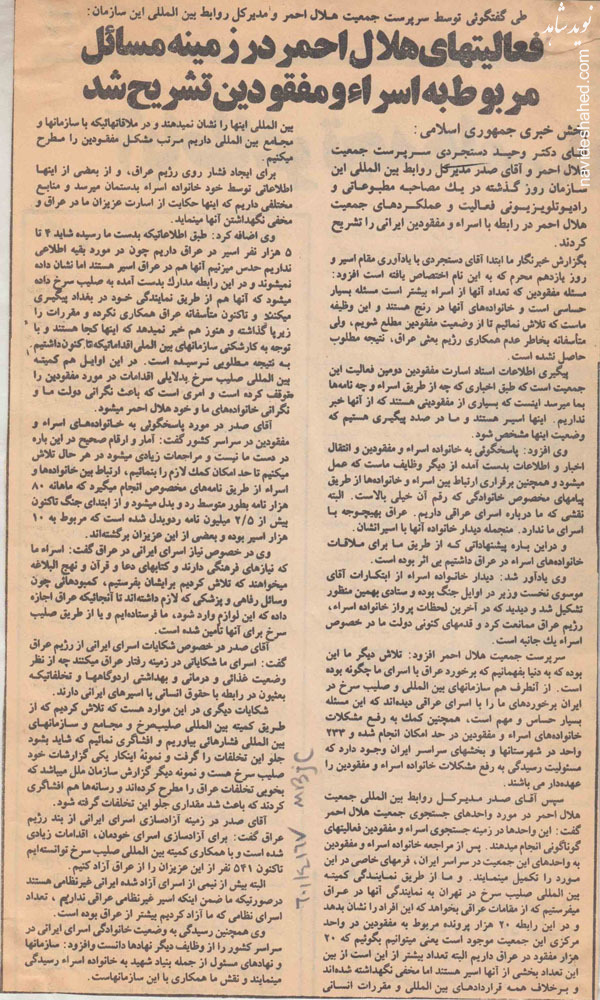 طی گفتگوئی توسط سرپرست جمعیت هلال احمر و مدیرکل روابط بین المللی این سازمان:
فعالیتهای هلال احمر در زمینه مسائل
مربوط به اسراء و مفقودین تشریح شد
بخش خبری جمهوری اسلامی:
آقای دکتر وحید دستجردی سرپرست جمعیت
هلال احمر و آقای صدر مدیرکل روابط بین المللی این
سازمان روز گذشته در یک مصاحبه مطبوعاتی و
رادیو تلویزیونی فعالیت و عملکردهای جمعیت
هلال احمر در رابطه با اسراء و مفقودین ایرانی را تشریح
کردند.
بگزارش خبرنگار ما ابتدا آقای دستجردی با یادآوری مقام اسیر و
روز یازدهم محرم که به این نام اختصاص یافته است افزود:
مسئله مفقودین که تعداد آنها از اسراء بیشتر است مسئله بسیار
حساسی است و خانواده‌های آنها در رنج هستند و این وظیفه
ماست که تلاش نمائیم تا از وضعیت مفقودین مطلع شویم، ولی
متأسفانه بخاطر عدم همکاری رژیم بعثی عراق، نتیجه مطلوب
حاصل نشده است.
پیگیری اطلاعات اسناد اسارت مفقودین دومین فعالیت این
جمعیت است که طبق اخباری که چه از طریق اسراء و چه نامه‌ها
بما میرسد اینست که بسیاری از مفقودینی هستند که از آنها خبر
نداریم. اینها اسیر هستند و ما در صدد پیگیری هستیم که
وضعیت اینها مشخص شود.
وی افزود: پاسخگوئی به خانواده اسراء و مفقودین و انتقال
اخبار و اطلاعات بدست آمده از دیگر وظایف ماست که عمل
میشود و همچنین برقراری ارتباط بین اسراء و خانواده‌ها از طریق
پیامهای مخصوص خانوادگی که رقم آن خیلی بالاست. البته
نقشی که ما درباره اسرای عراقی داریم. عراق بهیچوجه با
اسرای ما ندارد. منجمله دیدار خانواده آنها با اسیرانشان.
و دراین باره پیشنهاداتی که از طریق ما برای ملاقات
خانواده‌های اسراء در عراق داشتیم بی اثر بوده است.
وی یادآور شد: دیدار خانواده اسراء از ابتکارات آقای
موسوی نخست وزیر در اوایل جنگ بوده و ستادی بهمین منظور
تشکیل شد و دیدید که در آخرین لحظات پرواز خانواده اسراء،
رژیم عراق ممانعت کرد و قدمهای کنونی دولت ما در خصوص
اسراء یك جانبه است.
سرپرست جمعیت هلال احمر افزود: تلاش دیگر ما این
بوده که به دنیا بفهمانیم که برخورد عراق با اسرای ما چگونه بوده
است. از آنطرف هم سازمانهای بین المللی و صلیب سرخ در
ایران برخوردهای ما را با اسرای عراقی دیده‌اند که این مسئله
بسیار حساس و مهم است، همچنین کمك به رفع مشکلات
خانواده‌های اسراء و مفقودین در حد امکان انجام شده و ۲۳۳
واحد در شهرستانها و بخشهای سراسر ایران وجود دارد که
مسئولیت رسیدگی به رفع مشکلات خانواده اسراء و مفقودین را
عهده‌دار می باشند.
سپس آقای صدر مدیرکل روابط بین المللی جمعیت
هلال احمر در مورد واحدهای جستجوی جمعیت هلال احمر
گفت: این واحدها در زمینه جستجوی اسراء و مفقودین فعالیتهای
گوناگونی انجام میدهند. پس از مراجعه خانواده اسراء و مفقودین
به واحدهای این جمعیت در سراسر ایران، فرمهای خاصی در این
مورد را تکمیل مینمایند. و ما از طریق نمایندگی کمیته
بین المللی صلیب سرخ در تهران به نمایندگی آنها در عراق
میفرستیم که از مقامات عراقی بخواهد که این افراد را نشان بدهد
و در این رابطه ۲۰ هزار پرونده مربوط به مفقودین در واحد
مرکزی این جمعیت موجود است یعنی میتوانیم بگوئیم که ۲۰
هزار مفقود در عراق داریم البته تعداد بیشتر از این است از بین
این تعداد بخشی از آنها اسیر هستند اما مخفی نگهداشته شده‌اند
و برخلاف همه قراردادهای بین المللی و مقررات انسانی
بین المللی اینها را نشان نمیدهند و در ملاقاتهائیکه با سازمانها و
مجامع بین المللی داریم مرتب مشکل مفقودین را مطرح
میکنیم.
برای ایجاد فشار روی رژیم عراق، و از بعضی از اینها
اطلاعاتی توسط خود خانواده اسراء بدستمان میرسد و منابع
مختلفی داریم که اینها حکایت از اسارت عزیزان ما در عراق و
مخفی نگهداشتن آنها مینماید.
وی اضافه کرد: طبق اطلاعاتیکه بدست ما رسیده شاید ۴ تا
۵ هزار نفر اسیر در عراق داریم چون در مورد بقیه اطلاعی
نداریم حدس میزنیم آنها هم در عراق اسیر هستند اما نشان داده
نمیشوند و در این رابطه مدارك بدست آمده به صلیب سرخ داده
میشود که آنها هم از طریق نمایندگی خود در بغداد پیگیری
میکنند و تاکنون متأسفانه عراق همکاری نکرده و مقررات را
زیرپا گذاشته و هنوز هم خبر نمیدهد که اینها کجا هستند و با
توجه به کارشکنی سازمانهای بین المللی اقداماتیکه تا کنون داشتیم
به نتیجه مطلوبی نرسیده است. در این اوایل هم کمیته
بین المللی صلیب سرخ بدلایلی اقدامات در مورد مفقودین را
متوقف کرده است و امری است که باعث نگرانی دولت ما و
نگرانی خانواده‌های ما و خود هلال احمر میشود.
آقای صدر در مورد پاسخگوئی به خانواده‌های اسراء و
مفقودین در سراسر کشور گفت: آمار و ارقام صحیح در این باره
در دست ما نیست و مراجعات زیادی میشود در هر حال تلاش
میکنیم تا حد امکان کمك لازم را بنمائیم، ارتباط بین خانواده‌ها و
اسراء از طریق نامه‌های مخصوص انجام میگیرد که ماهانه ۸۰
هزار نامه بطور متوسط رد و بدل میشود و از ابتدای جنگ تاکنون
بیش از ۲/۵ میلیون نامه ردوبدل شده است که مربوط به ۱۰
هزار اسیر بوده و بعضی از این عزیزان برگشته‌اند.
وی در خصوص نیاز اسرای ایرانی در عراق گفت: اسراء ما
که نیازهای فرهنگی دارند و کتابهای دعا و قرآن و نهج البلاغه
میخواهند که تلاش کردیم برایشان بفرستیم، کمبودهائی چون
وسائل رفاهی و پزشکی که لازم داشته‌اند تا آنجائیکه عراق اجازه
داده که این لوازم وارد شود، ما فرستاده‌ایم و یا از طریق صلیب
سرخ برای آنها تأمین شده است.
آقای صدر در خصوص شکایات اسرای ایرانی از رژیم عراق
گفت: اسرای ما شکایاتی در زمینه رفتار عراق میکنند چه از نظر
وضعیت غذائی و درمانی و بهداشتی اردوگاهها و تخلفاتیکه
بعثیون در رابطه با حقوق انسانی با اسیرهای ایرانی دارند.
شکایات دیگری در این موارد هست که تلاش کردیم که از
طریق کمیته بین المللی صلیب‌سرخ و مجامع و سازمانهای
بین المللی فشارهائی بیاوریم و افشاگری نمائیم که شاید بشود
جلو این تخلفات را گرفت و نمونه اینکار یکی گزارشات خود
صلیب سرخ هست و نمونه دیگر گزارش سازمان ملل میباشد که
بخوبی تخلفات عراق را مطرح کرده‌اند و رسانه‌ها هم افشاگری
کردند که باعث شد مقداری جلو این تخلفات گرفته شود.
آقای صدر در زمینه آزادسازی اسرای ایرانی از بند رژیم
عراق گفت: برای آزادسازی اسرای خودمان، اقدامات زیادی
شده است و با همکاری کمیته بین المللی صلیب سرخ توانسته‌ایم
تاکنون ۵۴۱ نفر از این عزیزان را از عراق آزاد کنیم.
البته بیش از نیمی از اسرای آزاد شده ایرانی غیرنظامی هستند
درصورتیکه ما ضمن اینکه اسیر غیرنظامی عراقی نداریم، تعداد
اسرای نظامی که ما آزاد کردیم بیشتر از عراق بوده است.
وی همچنین رسیدگی به وضعیت خانوادگی اسرای ایرانی در
سراسر کشور را از وظایف دیگر نهادها دانست وافزود: سازمانها
و نهادهای مسئول از جمله بنیاد شهید به خانواده اسراء رسیدگی
مینمایند و نقش ما همکاری با این سازمانهاست.
نوید شاهد
navideshahed.com